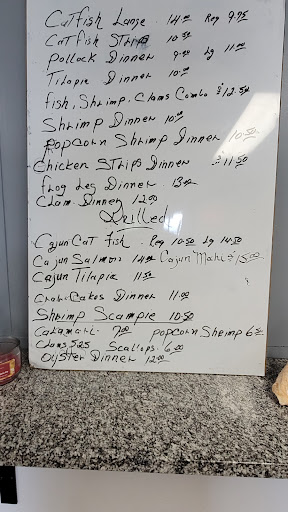 Catfish Large 14.00 Reg 9.75
Catfish Strips 10.50
Pollock Dinner 9.00 Lg 11.00
Tilapia Dinner 10.00
fish, Shrimp, Clams Combo $12.50
Shrimp Dinner 10.00
Popcorn Shrimp Dinner 10.50
Chicken Strips Dinner $11.50
frog leg Dinner 13.00
Clam Dinner 12.00
Grilled
Cajun Cat fish Reg 10.50 Lg 14.50
Cajun Salmon 14.00 Cajun Mahi $15.00
Cajun Tilapia 11.50
Crab Cakes Dinner 11.00
Shrimp Scampie 10.50
Calamari 7.00 Popcorn Shrimp 6.50
Clams 5.25 Scallops 6.00
Oyster Dinner 12.00